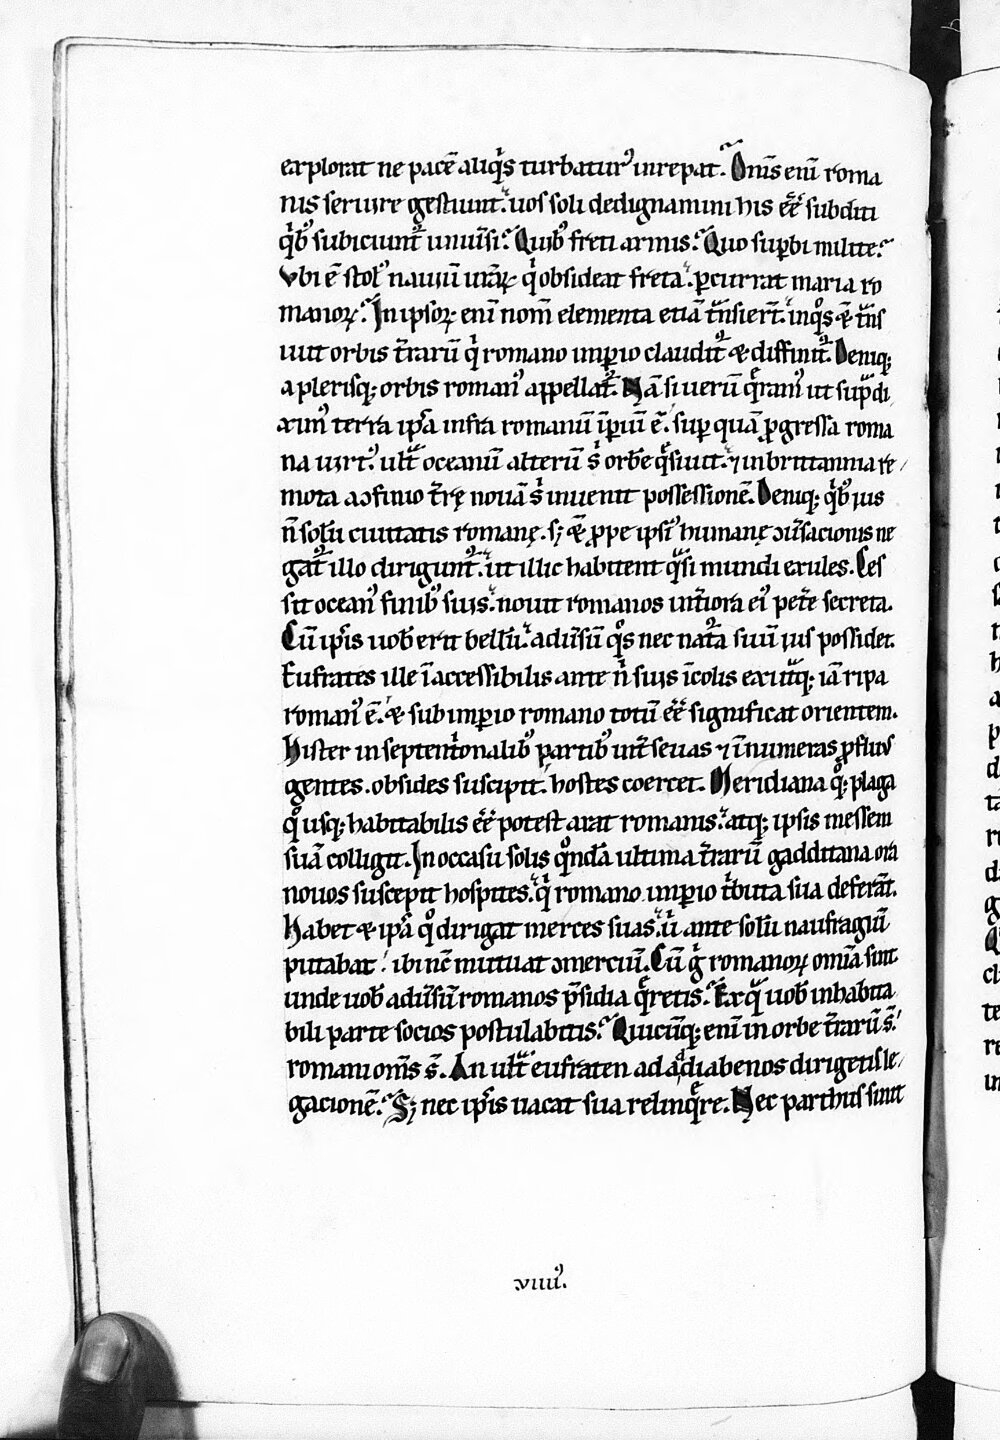 explorat ne pacē aliq̇s turbatur᾽ inrepat. Om̄s enī roma
nis seruire gestiunt. uos soli dedignamini his eē subditi
q̇b᾽ subiciunt᾽ uniūsi. Quib᾽ freti armis. Quo suꝑbi milite.
Vbi ē stol᾽ nauiū urāꝝ q̇ obsideat freta. ꝑcurrat maria ro
manoꝝ. In ipsoꝝ enī nom̄ elementa etiā tn̄siert̄. inq̊s & tn̄s
iuit orbis t̄rarū q̇ romano imꝑio claudit᾽ & diffinit᾽. Deniq;
a plerisq; orbis roman᾽ appellat᾽. Nā si uerū q̄ram᾽ ut sup̄di
xim᾽ terra ip̄a infra romanū īꝑiū ē. suꝑ quā ꝓgressa roma
na uirt᾽. ult᾽ oceanū alterū s̄ orbē q̄siuit. ⁊ in britannia re
mota a ↄfinio t̄rę nouā s̄ inuenit possessionē. Deniq; q̇b᾽ ius
n̄ solū ciuitatis romanę. s; & ꝓpe ipsi᾽ humanę ↄūsacionis ne
gat᾽ illo dirigunt᾽. ut illic habitent q̄si mundi exules. Ces
sit ocean᾽ finib᾽ suis. nouit romanos int̄iora ei᾽ pet̄e secreta.
Cū ip̄is uob̄ erit bellū. adūsū q̊s nec nat̄a suū ius possidet.
Eufrates ille īaccessibilis ante n̄ suis īcolis exutq; iā ripa
roman᾽ ē. & sub imꝑio romano totū eē significat orientem.
Hister in septent̄onalib᾽ partib᾽ int̄ seuas ⁊ īnumeras ꝓfluus
gentes. obsides suscipit. hostes coercet. Meridiana q̊; plaga
q̊ usq; habitabilis eē potest arat romanis. atq; ipsis messem
suā colligit. In occasu solis q̊ndā ultima t̄rarū gadditana ora
nouos suscepit hospites. q̇ romano imꝑio ṫbuta sua deferāt.
Habet & ip̄a q̊ dirigat merces suas. ū ante solū naufragiū
putabat. ibi nc̄ mutuat ↄmerciū. Cū ġ romanoꝝ omīa sint
unde uob̄ adūsū romanos p̄sidia q̄retis. Ex q̄ uob̄ inhabita
bili parte socios postulabitis. Quicūq; enī in orbe t̄rarū s̄.
romani om̄s s̄. An ult᾽ eufraten ad adiabenos dirigetis le
gacionē. S; nec ip̄is uacat sua relinq̄re. Nec parthus sinit
viiii᾽.